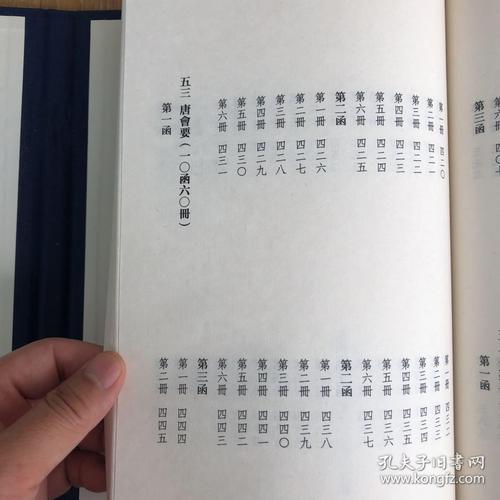 第六冊
第三函
第一函
第一冊 四二〇
第二冊 四二一
第三冊 四二二
第四冊 四二三
第五冊 四二四
第六冊 四二五
第二函
第一冊 四二六
第二冊 四二七
第三冊 四二八
第四冊 四二九
第五冊 四三〇
第六冊 四三一
五三 唐會要(一〇函六〇冊)
第一函
第一冊 四三二
第二冊 四三三
第三冊 四三四
第四冊 四三五
第五冊 四三六
第六冊 四三七
第二函
第一冊 四三八
第二冊 四三九
第三冊 四四〇
第四冊 四四一
第五冊 四四二
第六冊 四四三
第三函
第一冊 四四四
第二冊 四四五
孔夫子旧书网
kongfz.com